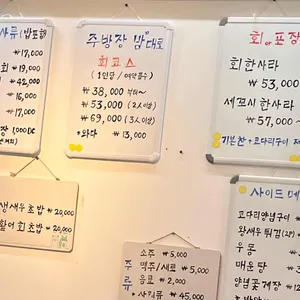 사류 (밥포함)
₩17,000
회 ₩19,000
₩42,000
₩16,000
₩17,000
장 1,000DC
주방장 맘대로
회코스
(1인당 / 예약필수)
₩38,000 부터~
₩53,000 (2人이상)
₩69,000 (3人이상)
+와다 ₩13,000
회。포장
회한사타
₩53,000
세꼬시한사타
₩57,000~
기본찬+코다리구이
생새우초밥 ₩20,000
활어회초밥 ₩20,000
소주 ₩5,000
주 맥주/새로 ₩5,000
음 음료 ₩2,000
류 *사케류 ₩45,000
사이드메
코다리양념구이
왕새우튀김(2P)
우동
매운탕
양념꽃게장